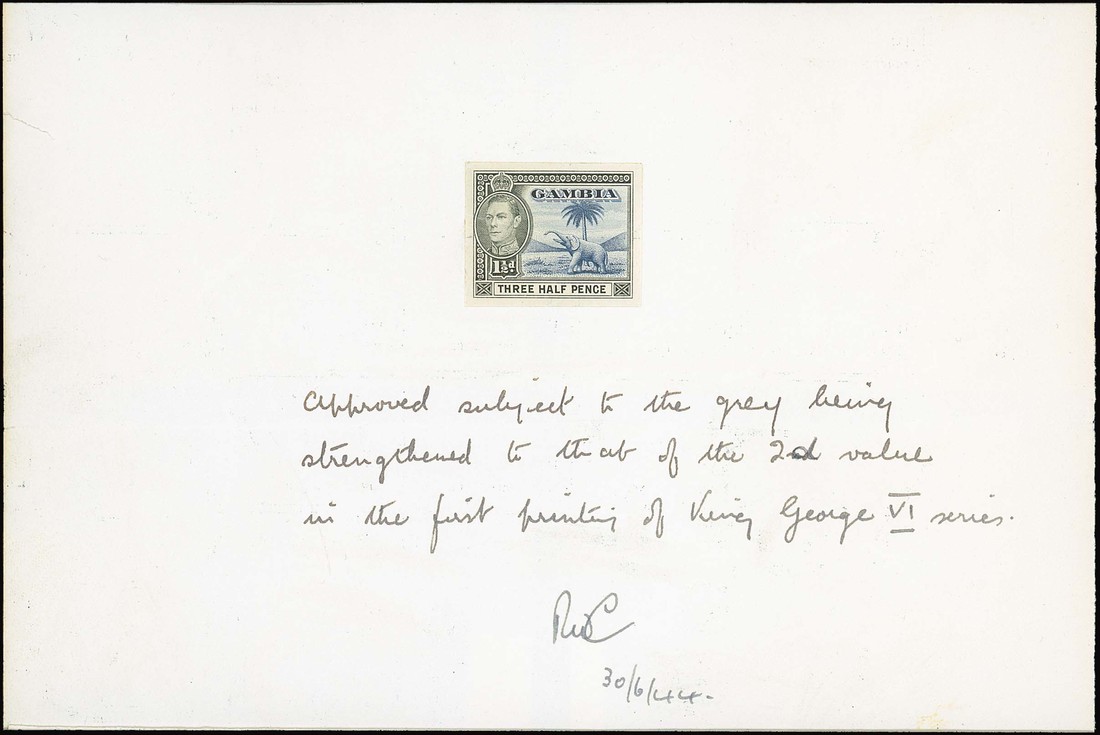 GAMBIA
1½d.
THREE HALF PENCE
Approved subject to the grey being
strengthened to that of the 2d value
in the first printing of King George VI series.
30/6/44.